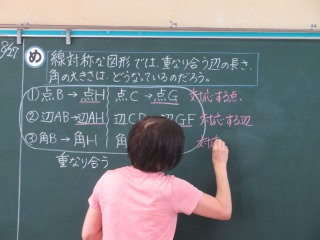 8/27
め 線対称な図形では、重なり合う辺の長さ、
角の大きさは、どうなっているのだろう。
①点B→点H 点C→点G 対応する点
②辺AB→辺AH 辺CD 辺GF 対応する辺
③角B→角H 角 対応
重なり合う